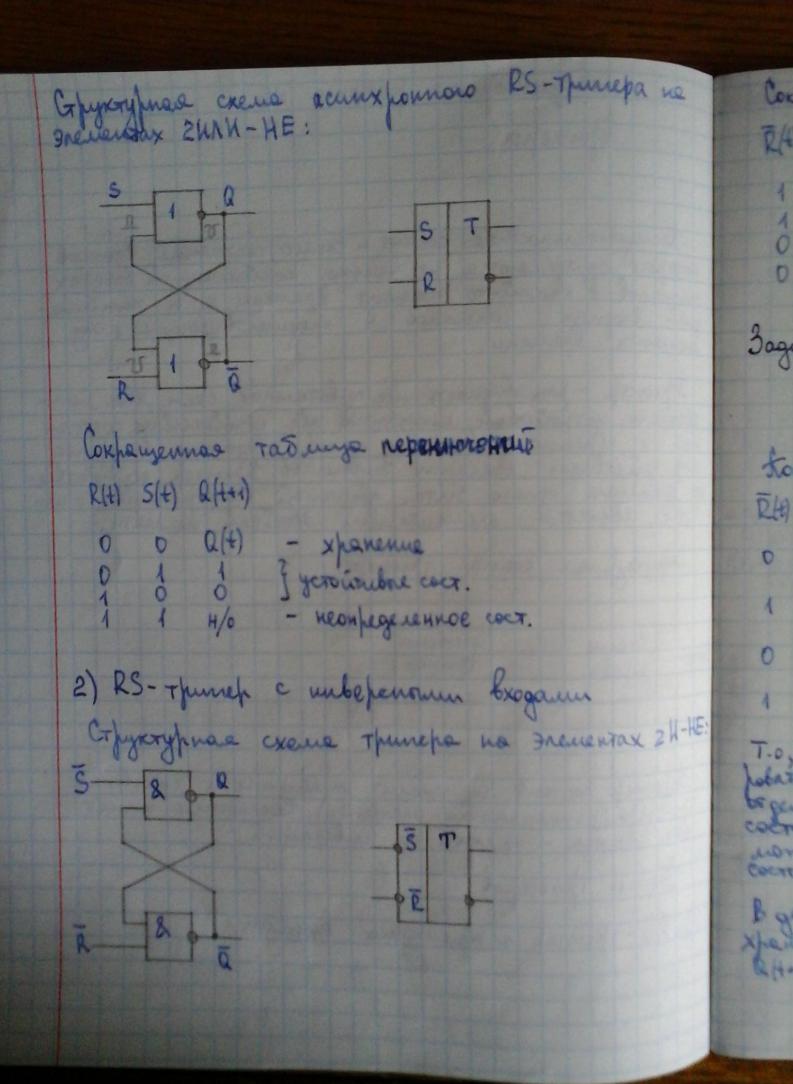 Структурная схема асинхронного RS-триггера на
элементах 2ИЛИ-НЕ:
S
1
Q
S T
R
1
R
Q̅
Сокращенная таблица переключений
R(t) S(t) Q(t+1)
0 0 Q(t) - хранение
0 1 1
1 0 0 } устойчивые сост.
1 1 н/о - неопределенное сост.
2) RS-триггер с инверсными входами
Структурная схема триггера на элементах 2И-НЕ:
S̅
&
Q
S̅ T
R̅
&
R̅
Q̅
R̅(t
1
1
0
0
R̅(t)
0
1
0
1
Т.о.